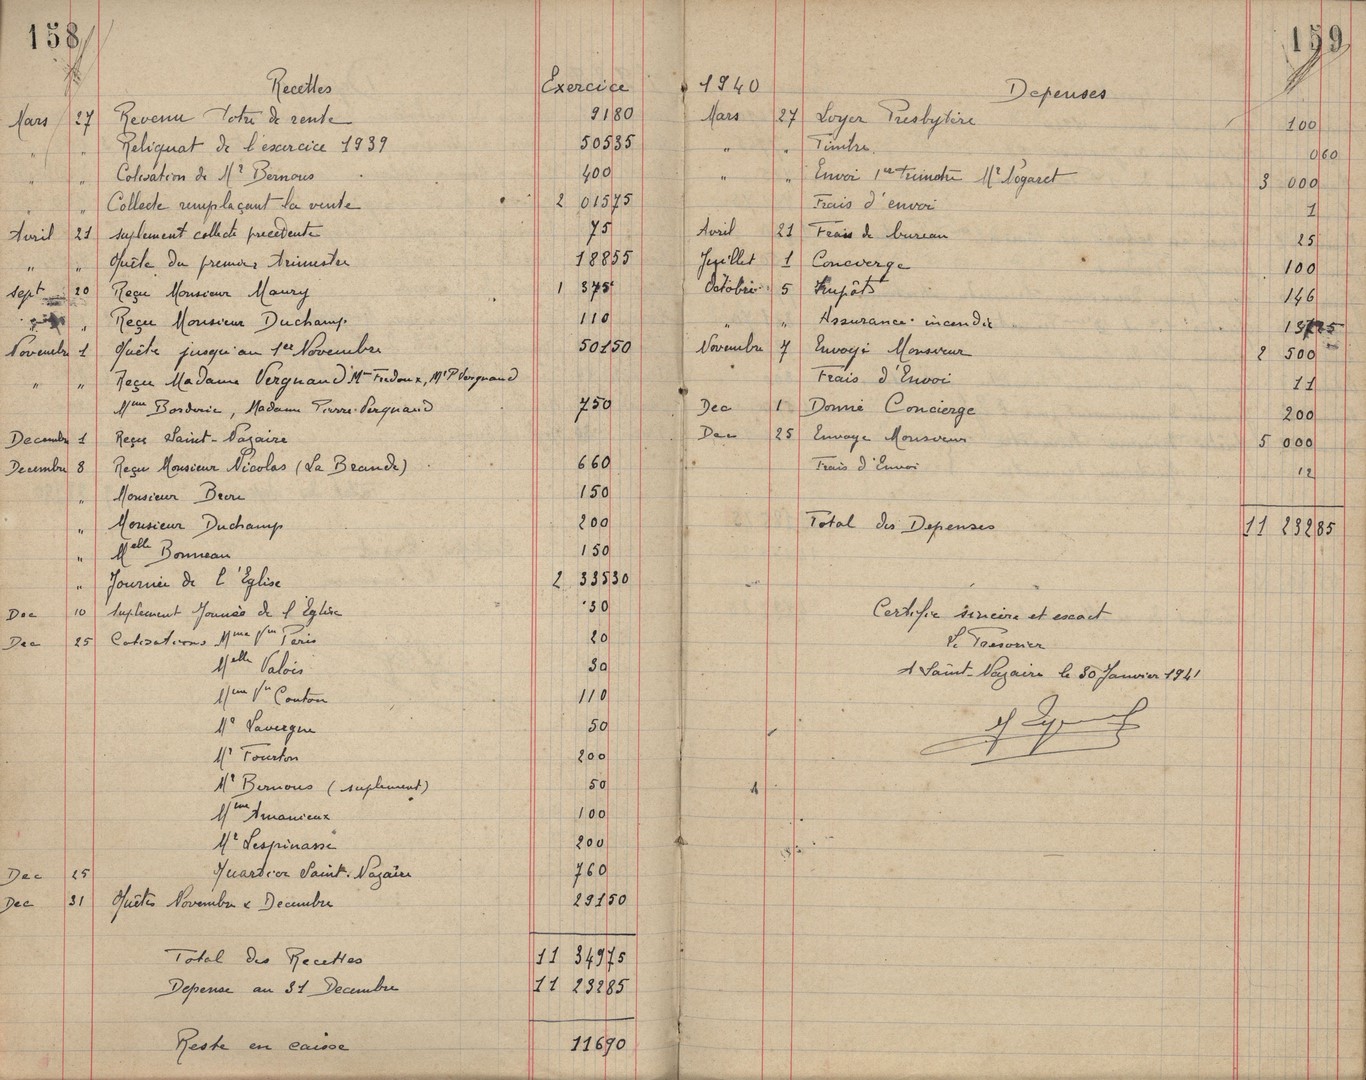 158
Recettes Exercice
Mars 27 Revenu Titre de rente 9180
" " Reliquat de l'éxercice 1939 50535
" " Cotisation de Mr Bernous 400
" " Collecte remplaçant la vente 2 01575
Avril 21 suplement collecte precedente 75
" " Quête du premier trimestre 18855
sept 20 Reçu Monsieur Maury 1 375
" " Reçu Monsieur Duchamp. 110
Novembre 1 Quête jusqu'au 1er Novembre 50150
" " Reçu Madame Vergnaud Mme Fredoux, Mr P Vergnaud
Mme Borderie, Madame Pierre Vergnaud 750
Decembre 1 Reçu Saint-Nazaire
Decembre 8 Reçu Monsieur Nicolas (La Brande) 660
" Monsieur 150
" Monsieur Duchamp 200
" Melle Bonneau 150
" Journée de l'Eglise 2 33530
Dec 10 suplement Journée de l'Eglise 30
Dec 25 Cotisations Mme Vve Peris 20
Melle Valois 30
Mme Vve Couton 110
Mr Lavergne 50
Mr Fourton 200
Mr Bernous (suplement) 50
Mme Amanieux 100
Mr Lespinasse 200
Dec 25 Quartier Saint-Nazaire 760
Dec 31 Quêtes Novembre & Decembre 29150
Total des Recettes 11 34975
Depense au 31 Decembre 11 23285
Reste en caisse 11690
159
1940 Depenses
Mars 27 Loyer Presbytère 100
" " Timbre. 060
" " Envoi 1er trimestre Mr Nogaret 3 000
Frais d'envoi 1
Avril 21 Frais de bureau 25
Juillet 1 Concierge 100
Octobre 5 Impôts 146
" " Assurance incendie 13725
Novembre 7 Envoyé Monsieur 2 500
Frais d'Envoi 11
Dec 1 Donné Concierge 200
Dec 25 Envoye Monsieur 5 000
Frais d'Envoi 12
Total des Depenses 11 23285
Certifie sincère et exact
Le Tresorier
A Saint-Nazaire le 30 Janvier 1941